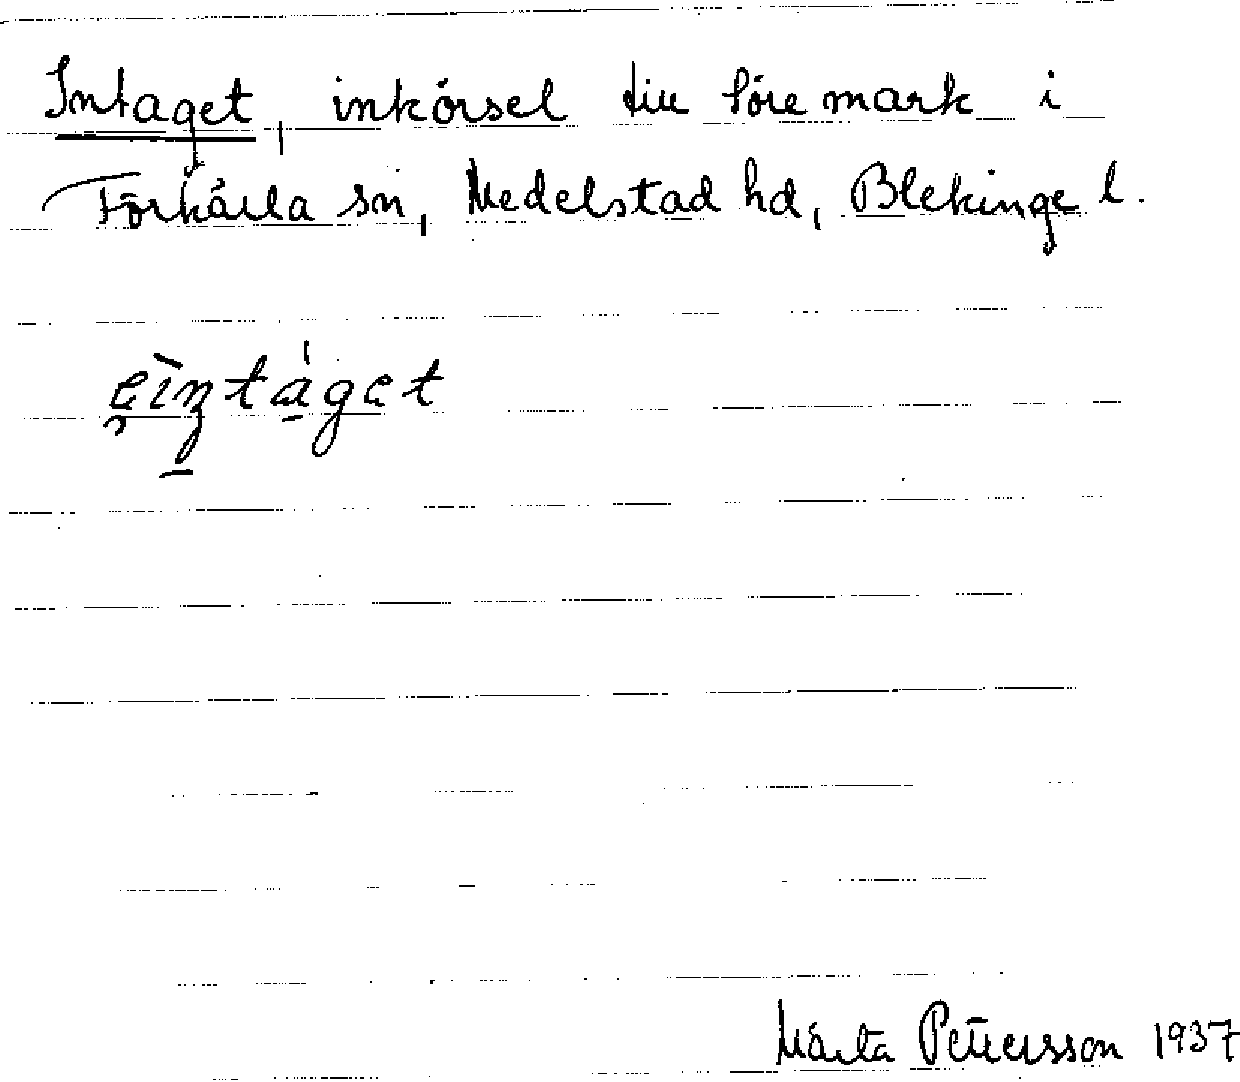 Intaget, inkörsel till söremark i
Förkärla sn, Medelstad hd, Blekinge l.
eintáget
Märta Pettersson 1937